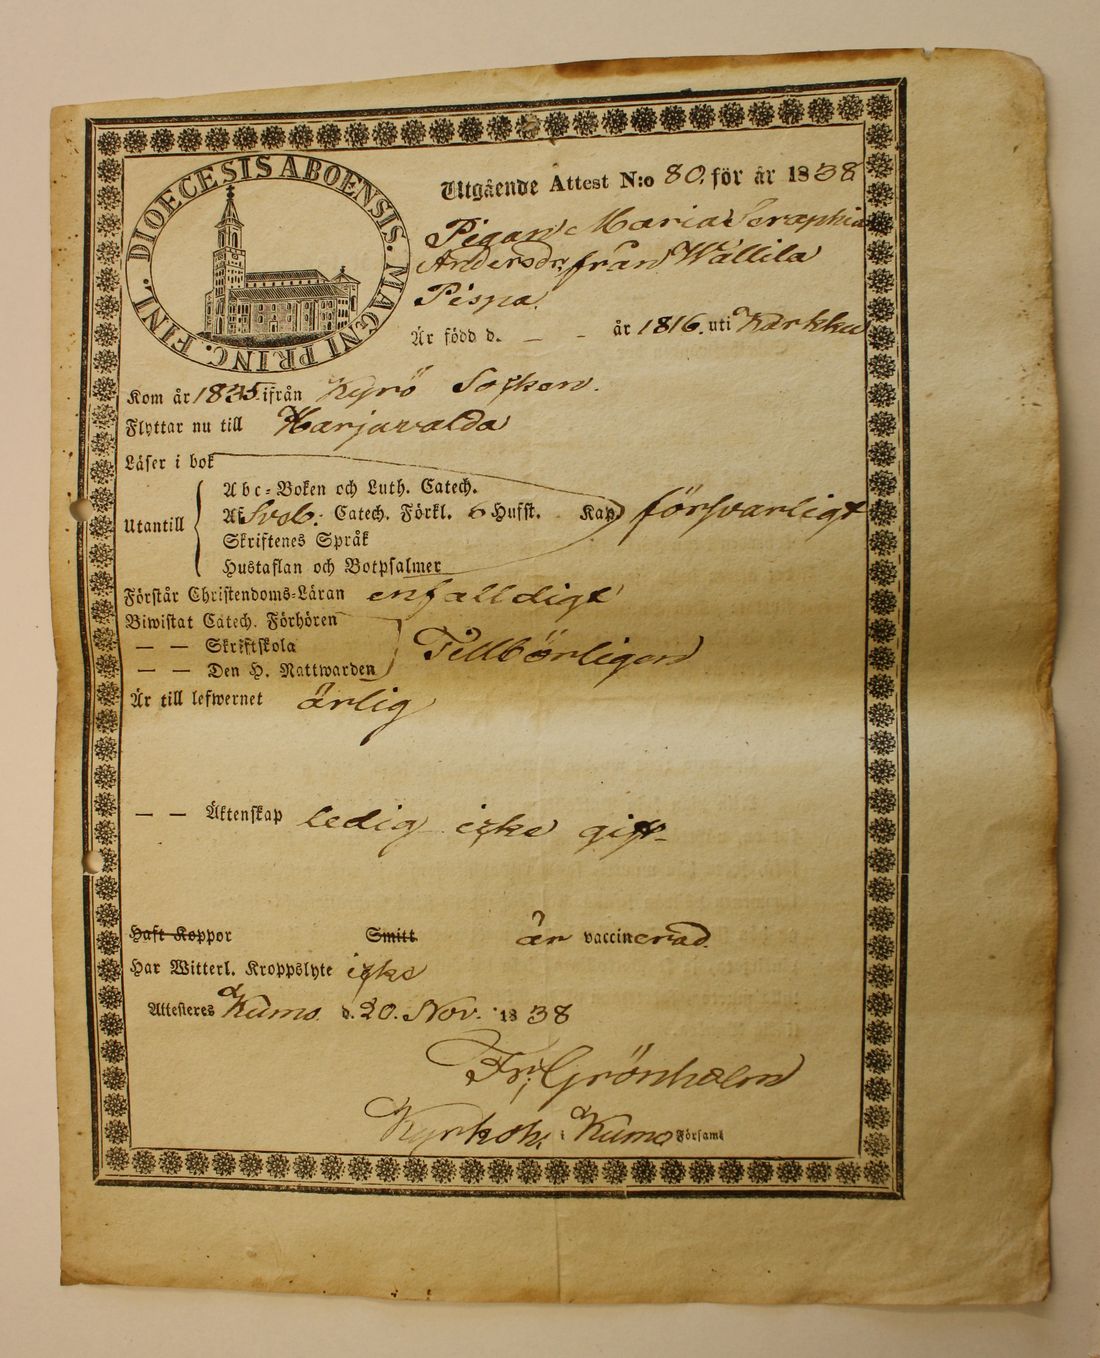 DIOECESIS ABOENSIS. MAGNI PRINC. FINL.
Utgående Attest N:o 80. för år 1838
Pigan Maria Seraphia
Andersdr. från Wällilä
Pispa.
Är född d. — - år 1816. uti Karkku
Kom år 1835. ifrån Kyrö Socken.
Flyttar nu till Harjavalda
Läser i bok
Utantill
Abc-Boken och Luth. Catech.
Af Sveb. Catech. Förkl. o Hufst. Kap försvarligt
Skriftenes Språk
Hustaflan och Botpsalmer
Förstår Christendoms-Läran enfalldigt
Biwistat Catech. Förhören
— — Skriftskola Tillbörligen
— — Den H. Nattwarden
Är till lefwernet ärlig
— — Äktenskap ledig icke gift
Haft Koppor Smitt är vaccinerad.
Har Witterl. Kroppslyte icke
Attesteras Kumo d. 20. Nov. 1838
Fr. Grönholm
i Kumo Församl